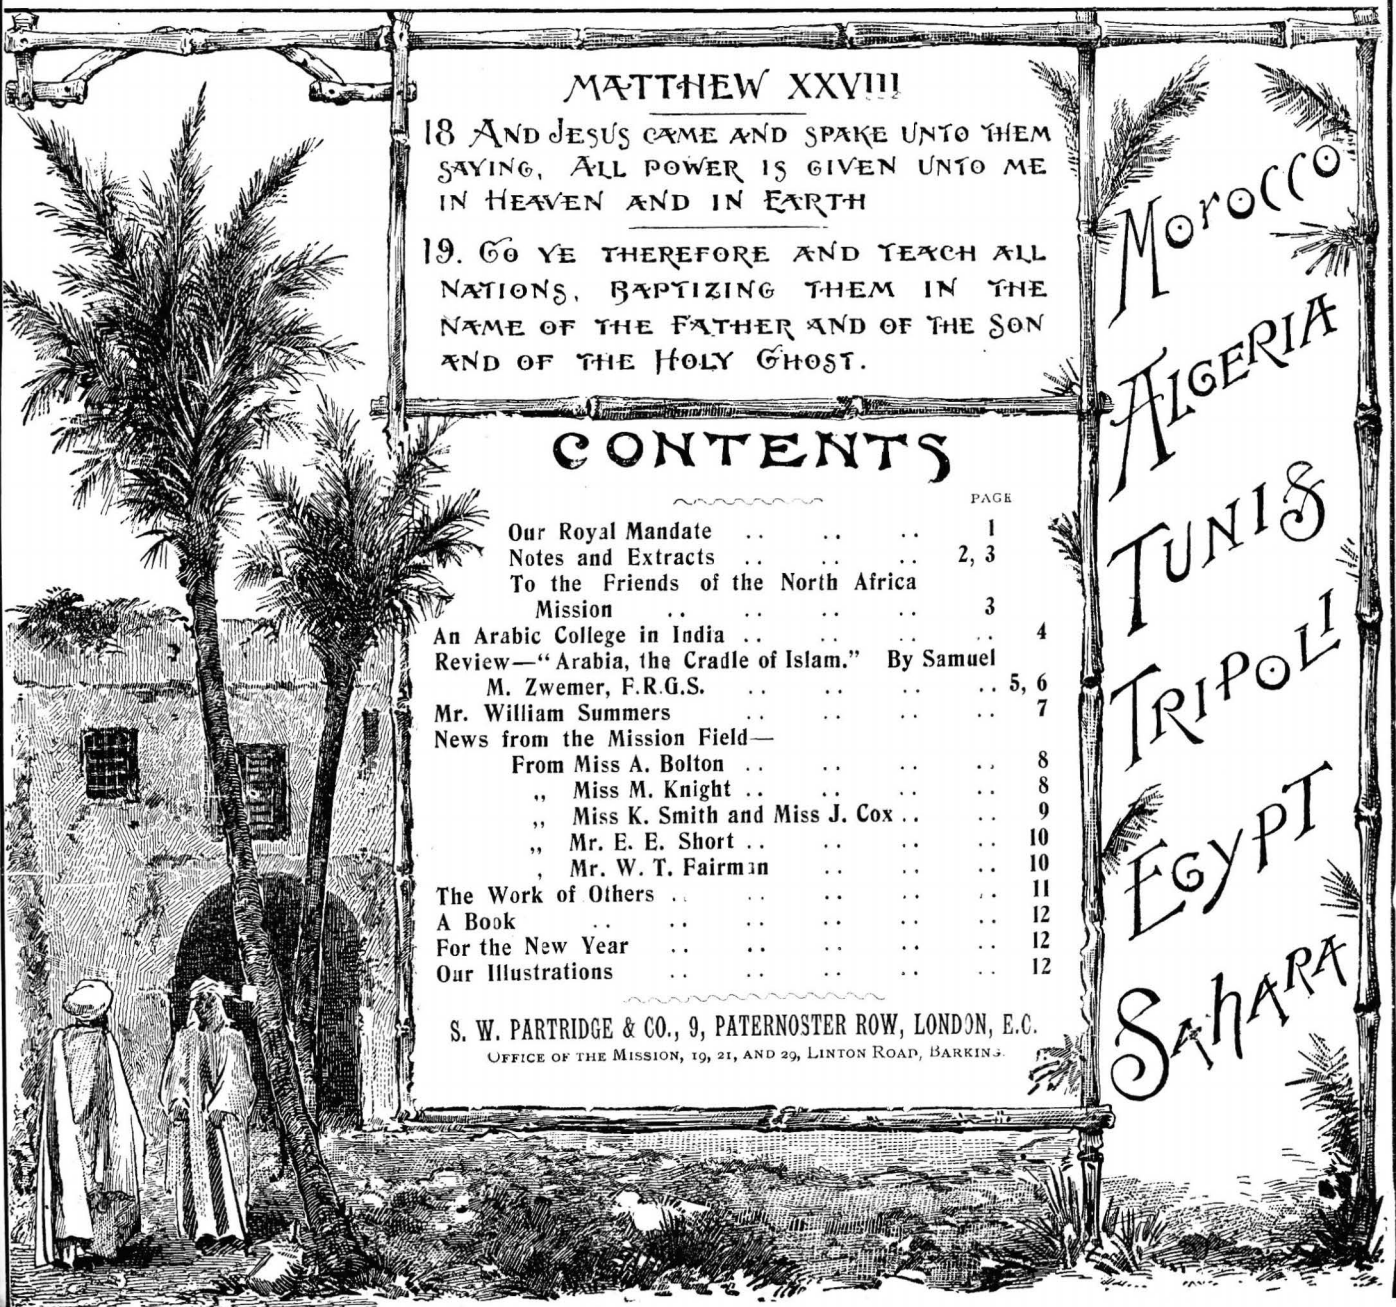 MATTHEW XXVIII
18 AND JESUS CAME AND SPAKE UNTO THEM
SAYING, ALL POWER IS GIVEN UNTO ME
IN HEAVEN AND IN EARTH
19. GO YE THEREFORE AND TEACH ALL
NATIONS, BAPTIZING THEM IN THE
NAME OF THE FATHER AND OF THE SON
AND OF THE HOLY GHOST.
CONTENTS
PAGE
Our Royal Mandate .. .. .. 1
Notes and Extracts .. .. .. 2, 3
To the Friends of the North Africa
Mission .. .. .. .. 3
An Arabic College in India .. .. .. .. 4
Review—“Arabia, the Cradle of Islam.” By Samuel
M. Zwemer, F.R.G.S. .. .. .. .. 5, 6
Mr. William Summers .. .. .. .. 7
News from the Mission Field—
From Miss A. Bolton .. .. .. .. 8
,, Miss M. Knight .. .. .. .. 8
,, Miss K. Smith and Miss J. Cox .. .. 9
,, Mr. E. E. Short .. .. .. .. 10
, Mr. W. T. Fairman .. .. .. 10
The Work of Others .. .. .. .. .. 11
A Book .. .. .. .. .. .. 12
For the New Year .. .. .. .. .. 12
Our Illustrations .. .. .. .. .. 12
S. W. PARTRIDGE & CO., 9, PATERNOSTER ROW, LONDON, E.C.
OFFICE OF THE MISSION, 19, 21, AND 29, LINTON ROAD, BARKING.
MOROCCO
ALGERIA
TUNIS
TRIPOLI
EGYPT
SAHARA